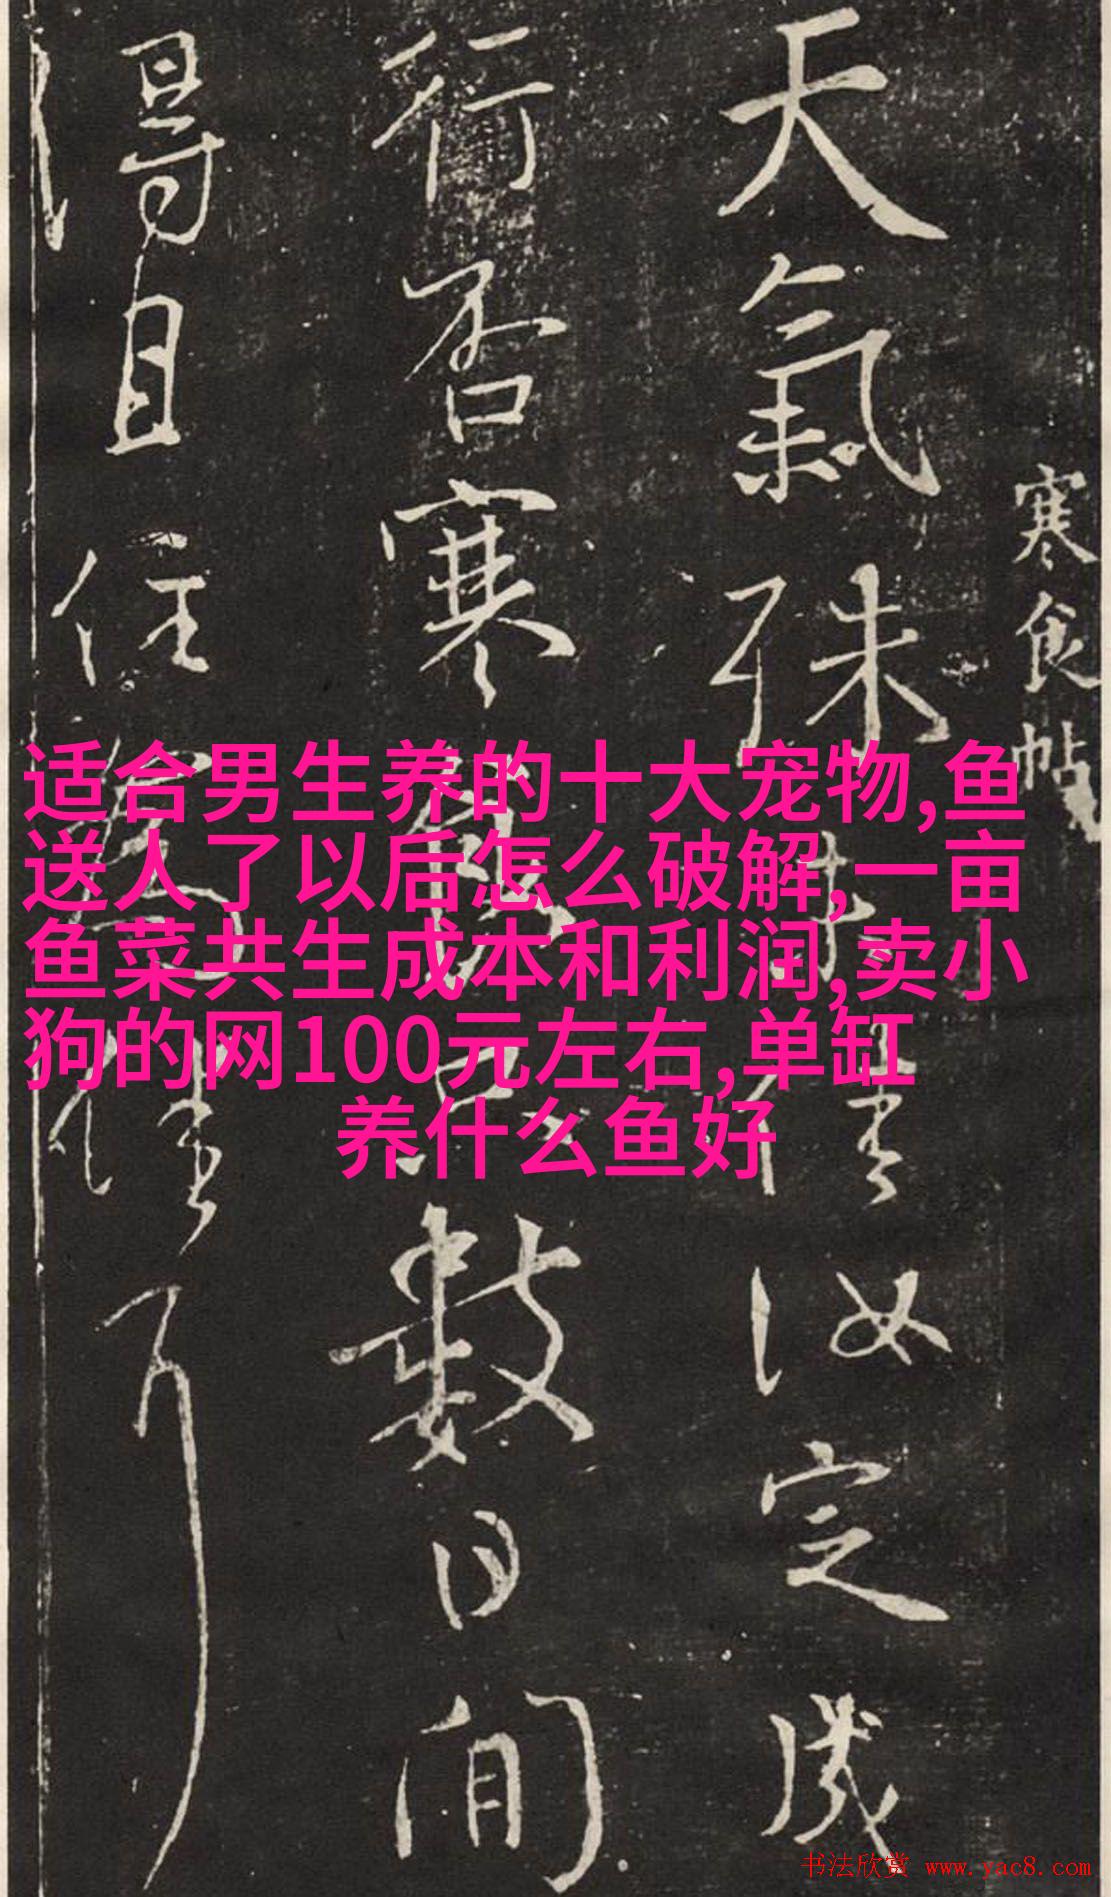 寒食帖
天氣殊未佳汝定成
行否寒食只數日間
得且住為佳耳
适合男生养的十大宠物,鱼
送人了以后怎么破解,一亩
鱼菜共生成本和利润,卖小
狗的网100元左右,单缸
养什么鱼好
书法欣赏 www.yac8.com